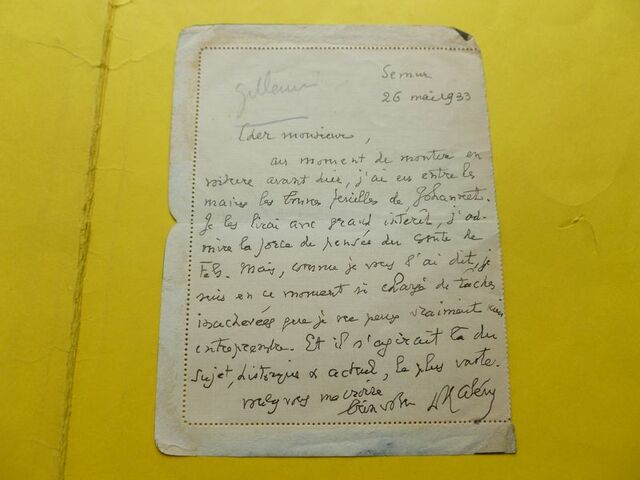 Semur
26 mai 1933
Cher monsieur,
au moment de monter en
voiture avant hier, j'ai eu entre les
mains les bonnes feuilles de Johannet.
Je les lirai avec grand intérêt, j'ad-
mire la force de pensée du
Mais, comme je vous l'ai dit, je
suis en ce moment si chargé de tâches
inachevées que je ne peux vraiment rien
entreprendre. Et il s'agirait là du
sujet, historique & actuel, le plus vaste.
me croire
bien vôtre D Halévy